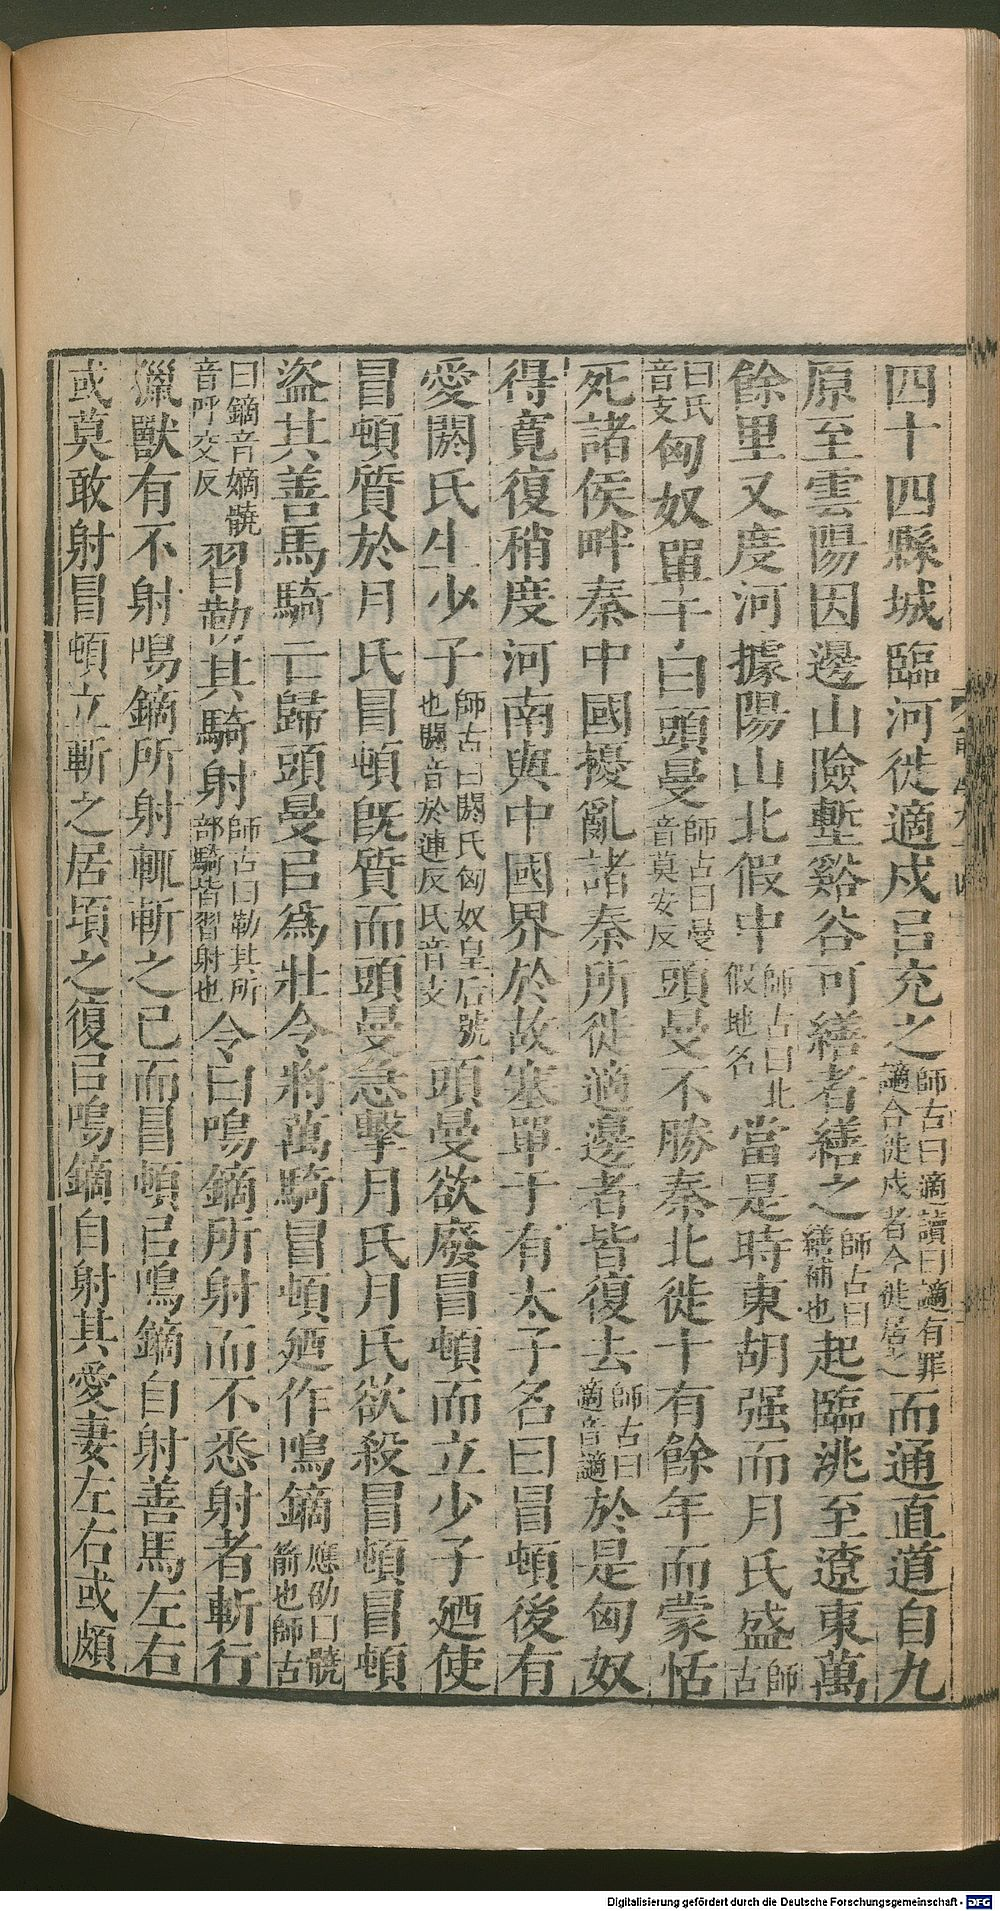 四十四縣城臨河徙適戍㠯充之師古曰適讀曰讁有罪讁合徙戍者令徙居之而通直道自九
原至雲陽因邊山險塹谿谷可繕者繕之師古曰繕補也起臨洮至遼東萬
餘里又度河據陽山北假中師古曰北假地名當是時東胡强而月氏盛師古
曰氏音支匈奴單于曰頭曼師古曰曼音莫安反頭曼不勝秦北徙十有餘年而蒙恬
死諸侯畔秦中國擾亂諸秦所徙適邊者皆復去師古曰適音讁於是匈奴
得寬復稍度河南與中國界於故塞單于有太子名曰冒頓後有
愛閼氏生少子師古曰閼氏匈奴皇后號也閼音於連反氏音支頭曼欲廢冒頓而立少子迺使
冒頓質於月氏冒頓旣質而頭曼急擊月氏月氏欲殺冒頓冒頓
盗其善馬騎亡歸頭曼㠯爲壯令將萬騎冒頓迺作鳴鏑應劭曰髐箭也師古
曰鏑音嫡髐音呼交反習勒其騎射師古曰勒其所部騎皆習射也令曰鳴鏑所射而不悉射者斬行
獵獸有不射鳴鏑所射輒斬之已而冒頓㠯鳴鏑自射善馬左右
或莫敢射冒頓立斬之居頃之復㠯鳴鏑自射其愛妻左右或頗
Digitalisierung gefördert durch die Deutsche Forschungsgemeinschaft - DFG